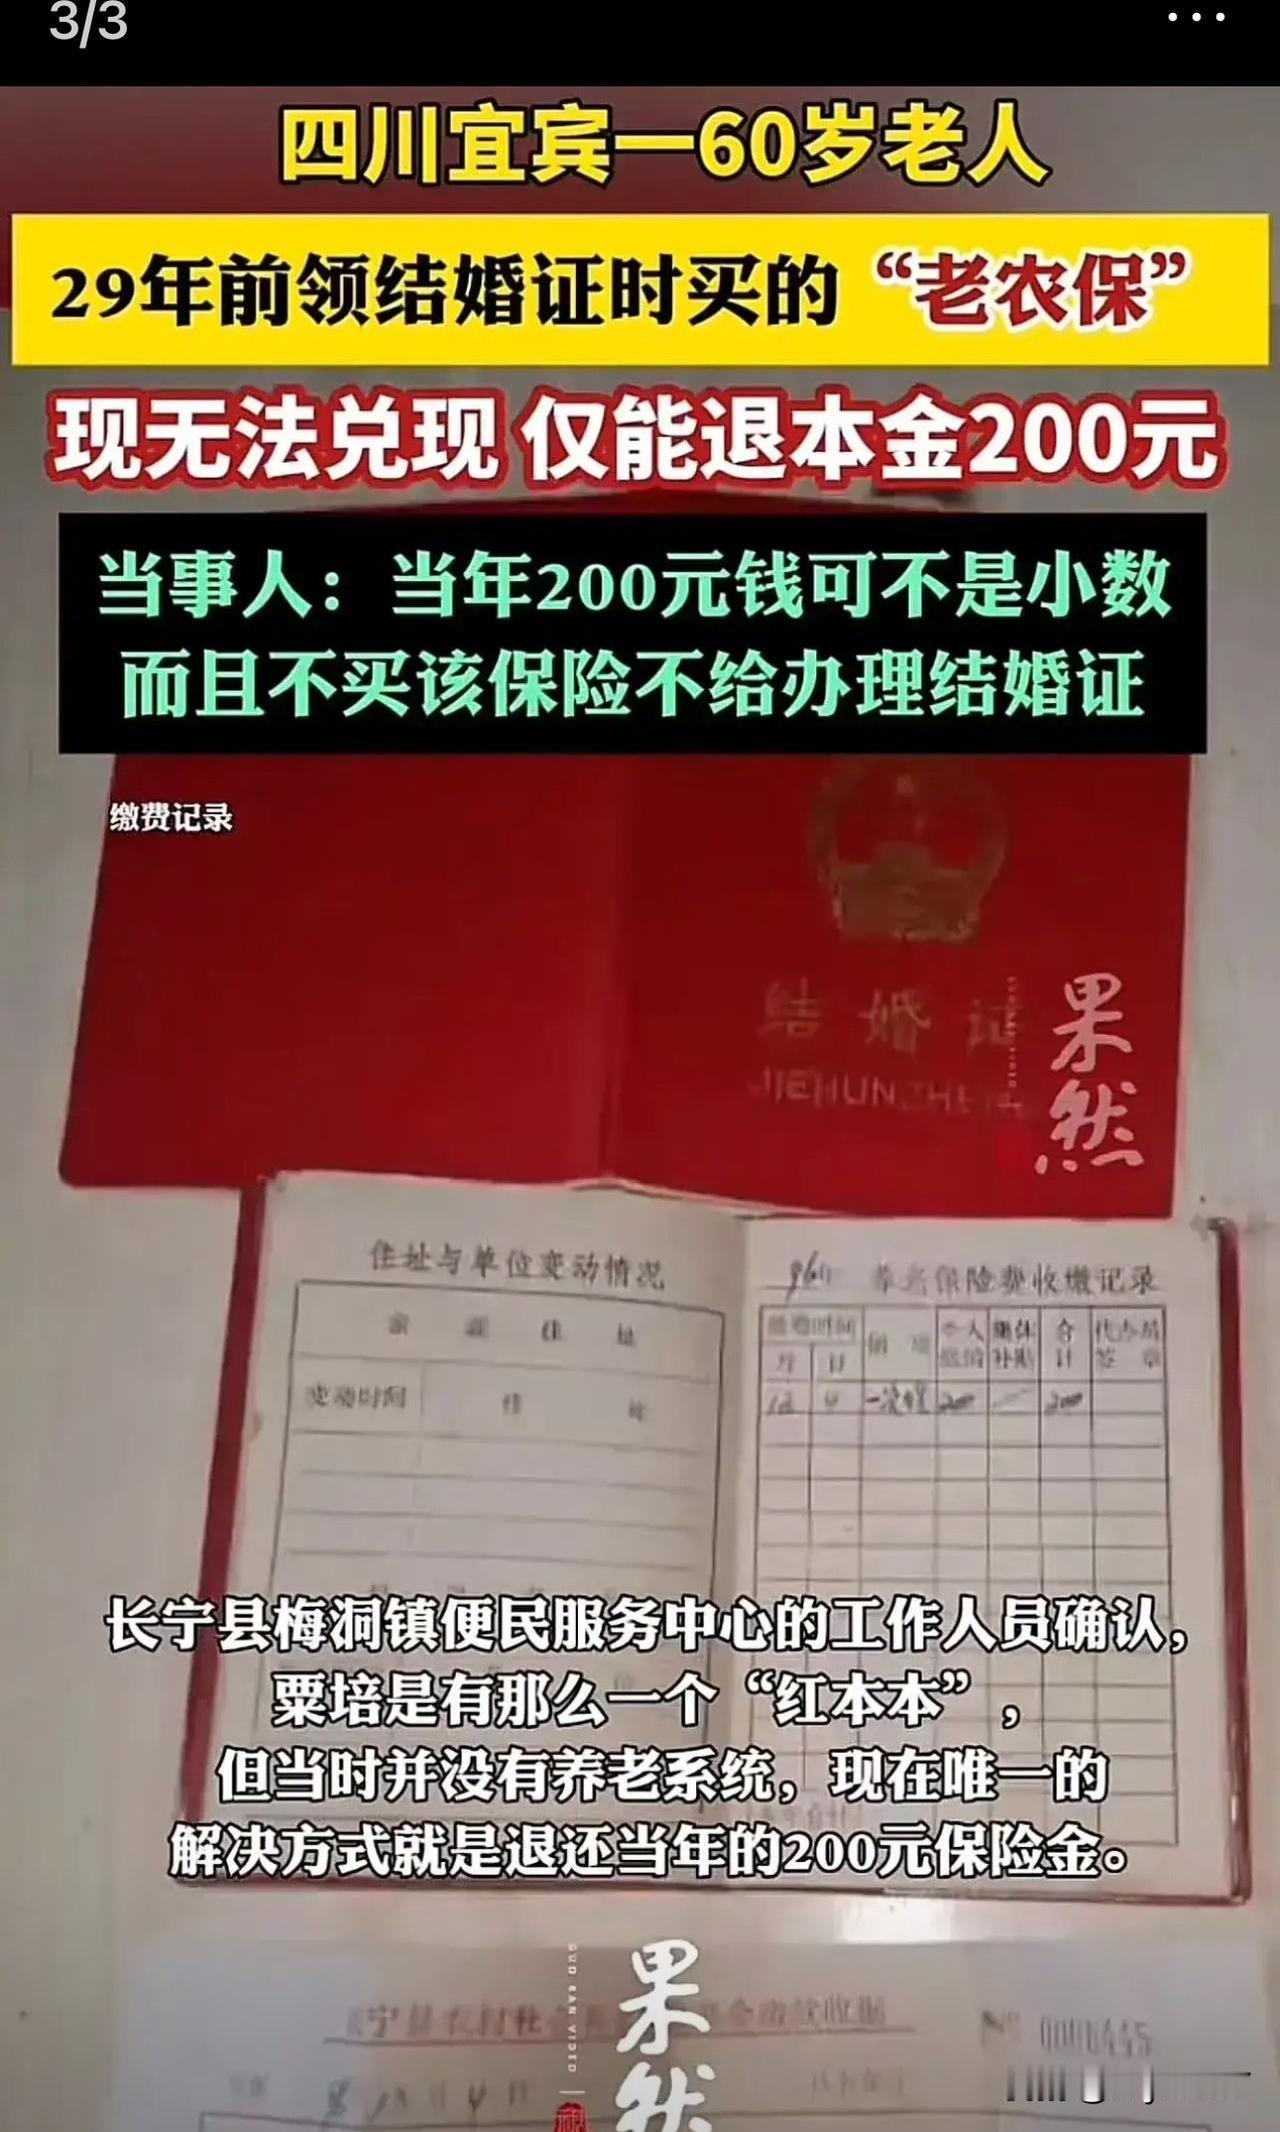 3/3
四川宜宾一60岁老人
29年前领结婚证时买的“老农保”
现无法兑现 仅能退本金200元
当事人：当年200元钱可不是小数
而且不买该保险不给办理结婚证
缴费记录
结婚证
JIEHUNZHENG
果然
住址与单位变动情况
家庭住址
变动时间 住址
96年 养老保险费收缴记录
缴费时间
月 日
个人缴纳
集体补贴
合计
代办员签章
12 4 一次性 200 200
长宁县梅洞镇便民服务中心的工作人员确认，
粟培是有那么一个“红本本”，
但当时并没有养老系统，现在唯一的
解决方式就是退还当年的200元保险金。
果然
GUO RAN VIDEO